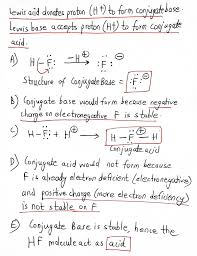 Lewis acid donates proton (H⁺) to form conjugate base.
Lewis base accepts proton (H⁺) to form conjugate
acid.
A) H-F: -H⊕ → :F:⊖
Structure of Conjugate Base = :F:⊖
B) Conjugate base would form because negative
charge on electronegative F is stable.
C) H-F: + H⊕ → H-F⊕-H
Conjugate acid
D) Conjugate acid would not form because
F is already electron deficient (electronegative)
and positive charge (more electron deficiency)
is not stable on F
E) Conjugate Base is stable, hence the
HF molecule act as acid